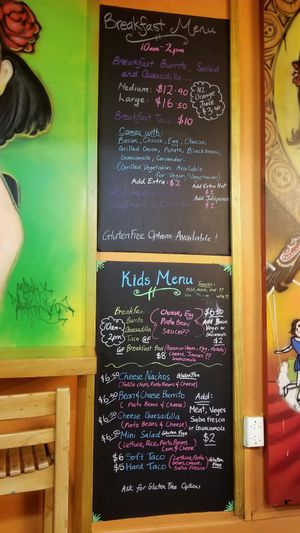 Breakfast Menu
10am-2pm
Breakfast Burrito, Salad
and Quesadilla....
Medium: $12.90
Large: $16.50
NZ
Orange
Juice
Breakfast Taco $10
Comes with:
Bacon, Cheese, Egg, Chorizo,
Grilled Onion, Potato, Black beans,
Guacamole, Coriander.
(Grilled Vegetables Available
for Vegan/Vegetarian)
Add Extra: $2
Add Extra Hot
Add Jalapenos
$1
Gluten Free Options Available!
Kids Menu
Sauces:
mild, med, hot
Breakfast
Burrito
Quesadilla
Taco GF
10am-
2pm
Cheese, Egg
Pinto Beans
Sauces??
$6.50
Add
Veges or
Guacamole
$2
GF Breakfast Box
$8
(Bacon or Veges, Egg, Pinto
Cheese, Sauces??
Guacamole
$6.50 Cheese Nachos Gluten Free
(Tortilla chips, Pinto Beans & Cheese)
$6.50 Bean & Cheese Burrito
(Pinto Beans & Cheese)
$6.50 Cheese Quesadilla
(Pinto Beans & Cheese)
$6.50 Mini Salad Gluten Free
(Lettuce, Rice, Pinto Beans,
Corn & Cheese)
$6 Soft Taco
$5 Hard Taco
(Lettuce, Pinto
beans, cheese,
Salsa Fresca)
Gluten
Free
Add:
Meat, Veges
Salsa Fresca
or Guacamole
$2
Ask for Gluten Free Options